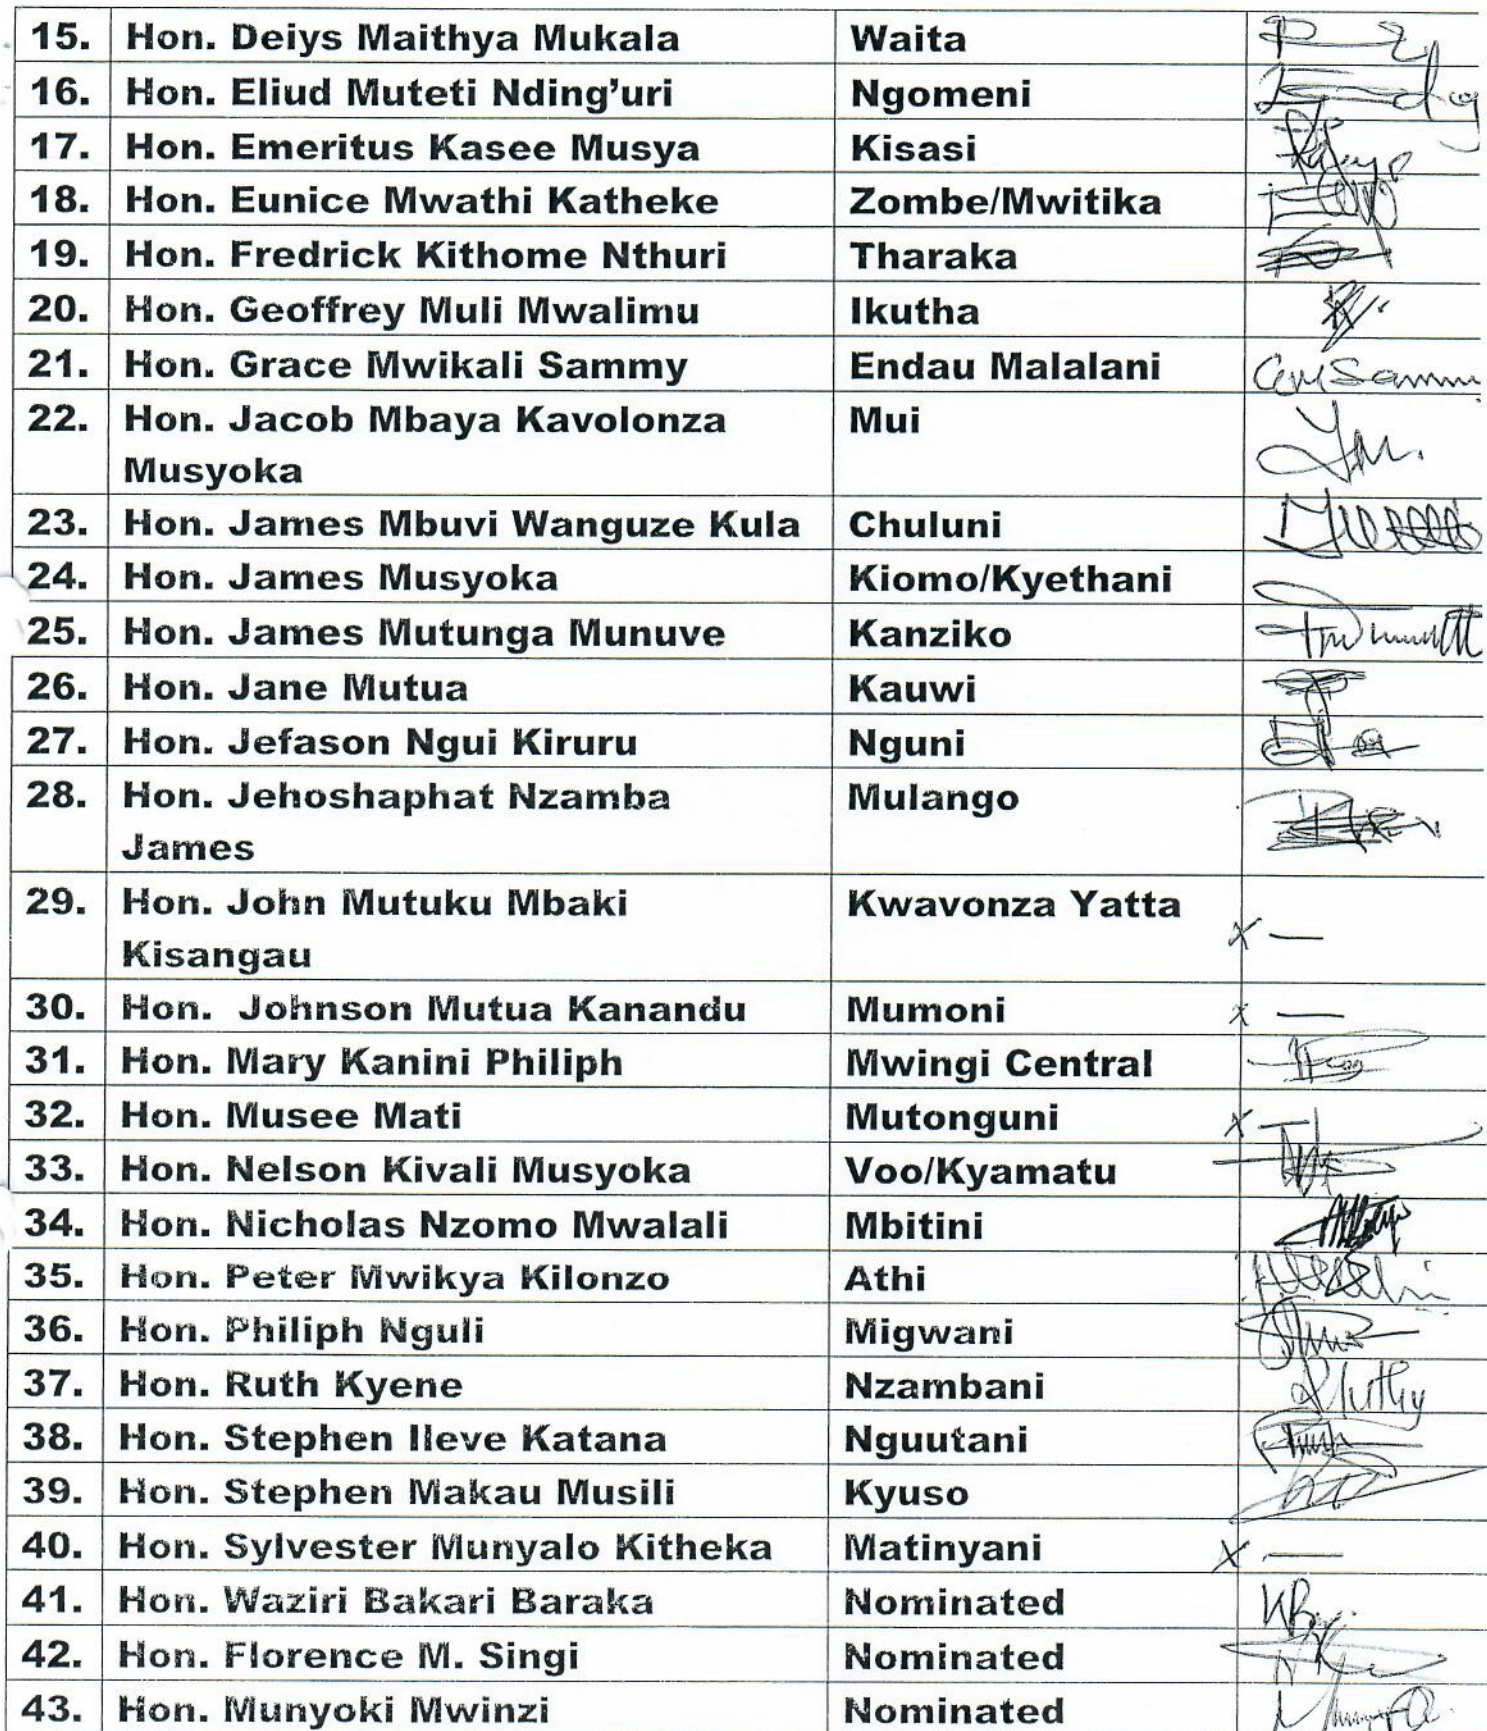 15. Hon. Deiys Maithya Mukala Waita
16. Hon. Eliud Muteti Nding'uri Ngomeni
17. Hon. Emeritus Kasee Musya Kisasi
18. Hon. Eunice Mwathi Katheke Zombe/Mwitika
19. Hon. Fredrick Kithome Nthuri Tharaka
20. Hon. Geoffrey Muli Mwalimu Ikutha
21. Hon. Grace Mwikali Sammy Endau Malalani
22. Hon. Jacob Mbaya Kavolonza Mui
Musyoka
23. Hon. James Mbuvi Wanguze Kula Chuluni
24. Hon. James Musyoka Kiomo/Kyethani
25. Hon. James Mutunga Munuve Kanziko
26. Hon. Jane Mutua Kauwi
27. Hon. Jefason Ngui Kiruru Nguni
28. Hon. Jehoshaphat Nzamba Mulango
James
29. Hon. John Mutuku Mbaki Kwavonza Yatta x —
Kisangau
30. Hon. Johnson Mutua Kanandu Mumoni x —
31. Hon. Mary Kanini Philiph Mwingi Central
32. Hon. Musee Mati Mutonguni x —
33. Hon. Nelson Kivali Musyoka Voo/Kyamatu
34. Hon. Nicholas Nzomo Mwalali Mbitini
35. Hon. Peter Mwikya Kilonzo Athi
36. Hon. Philiph Nguli Migwani
37. Hon. Ruth Kyene Nzambani
38. Hon. Stephen Ileve Katana Nguutani
39. Hon. Stephen Makau Musili Kyuso
40. Hon. Sylvester Munyalo Kitheka Matinyani x —
41. Hon. Waziri Bakari Baraka Nominated
42. Hon. Florence M. Singi Nominated
43. Hon. Munyoki Mwinzi Nominated